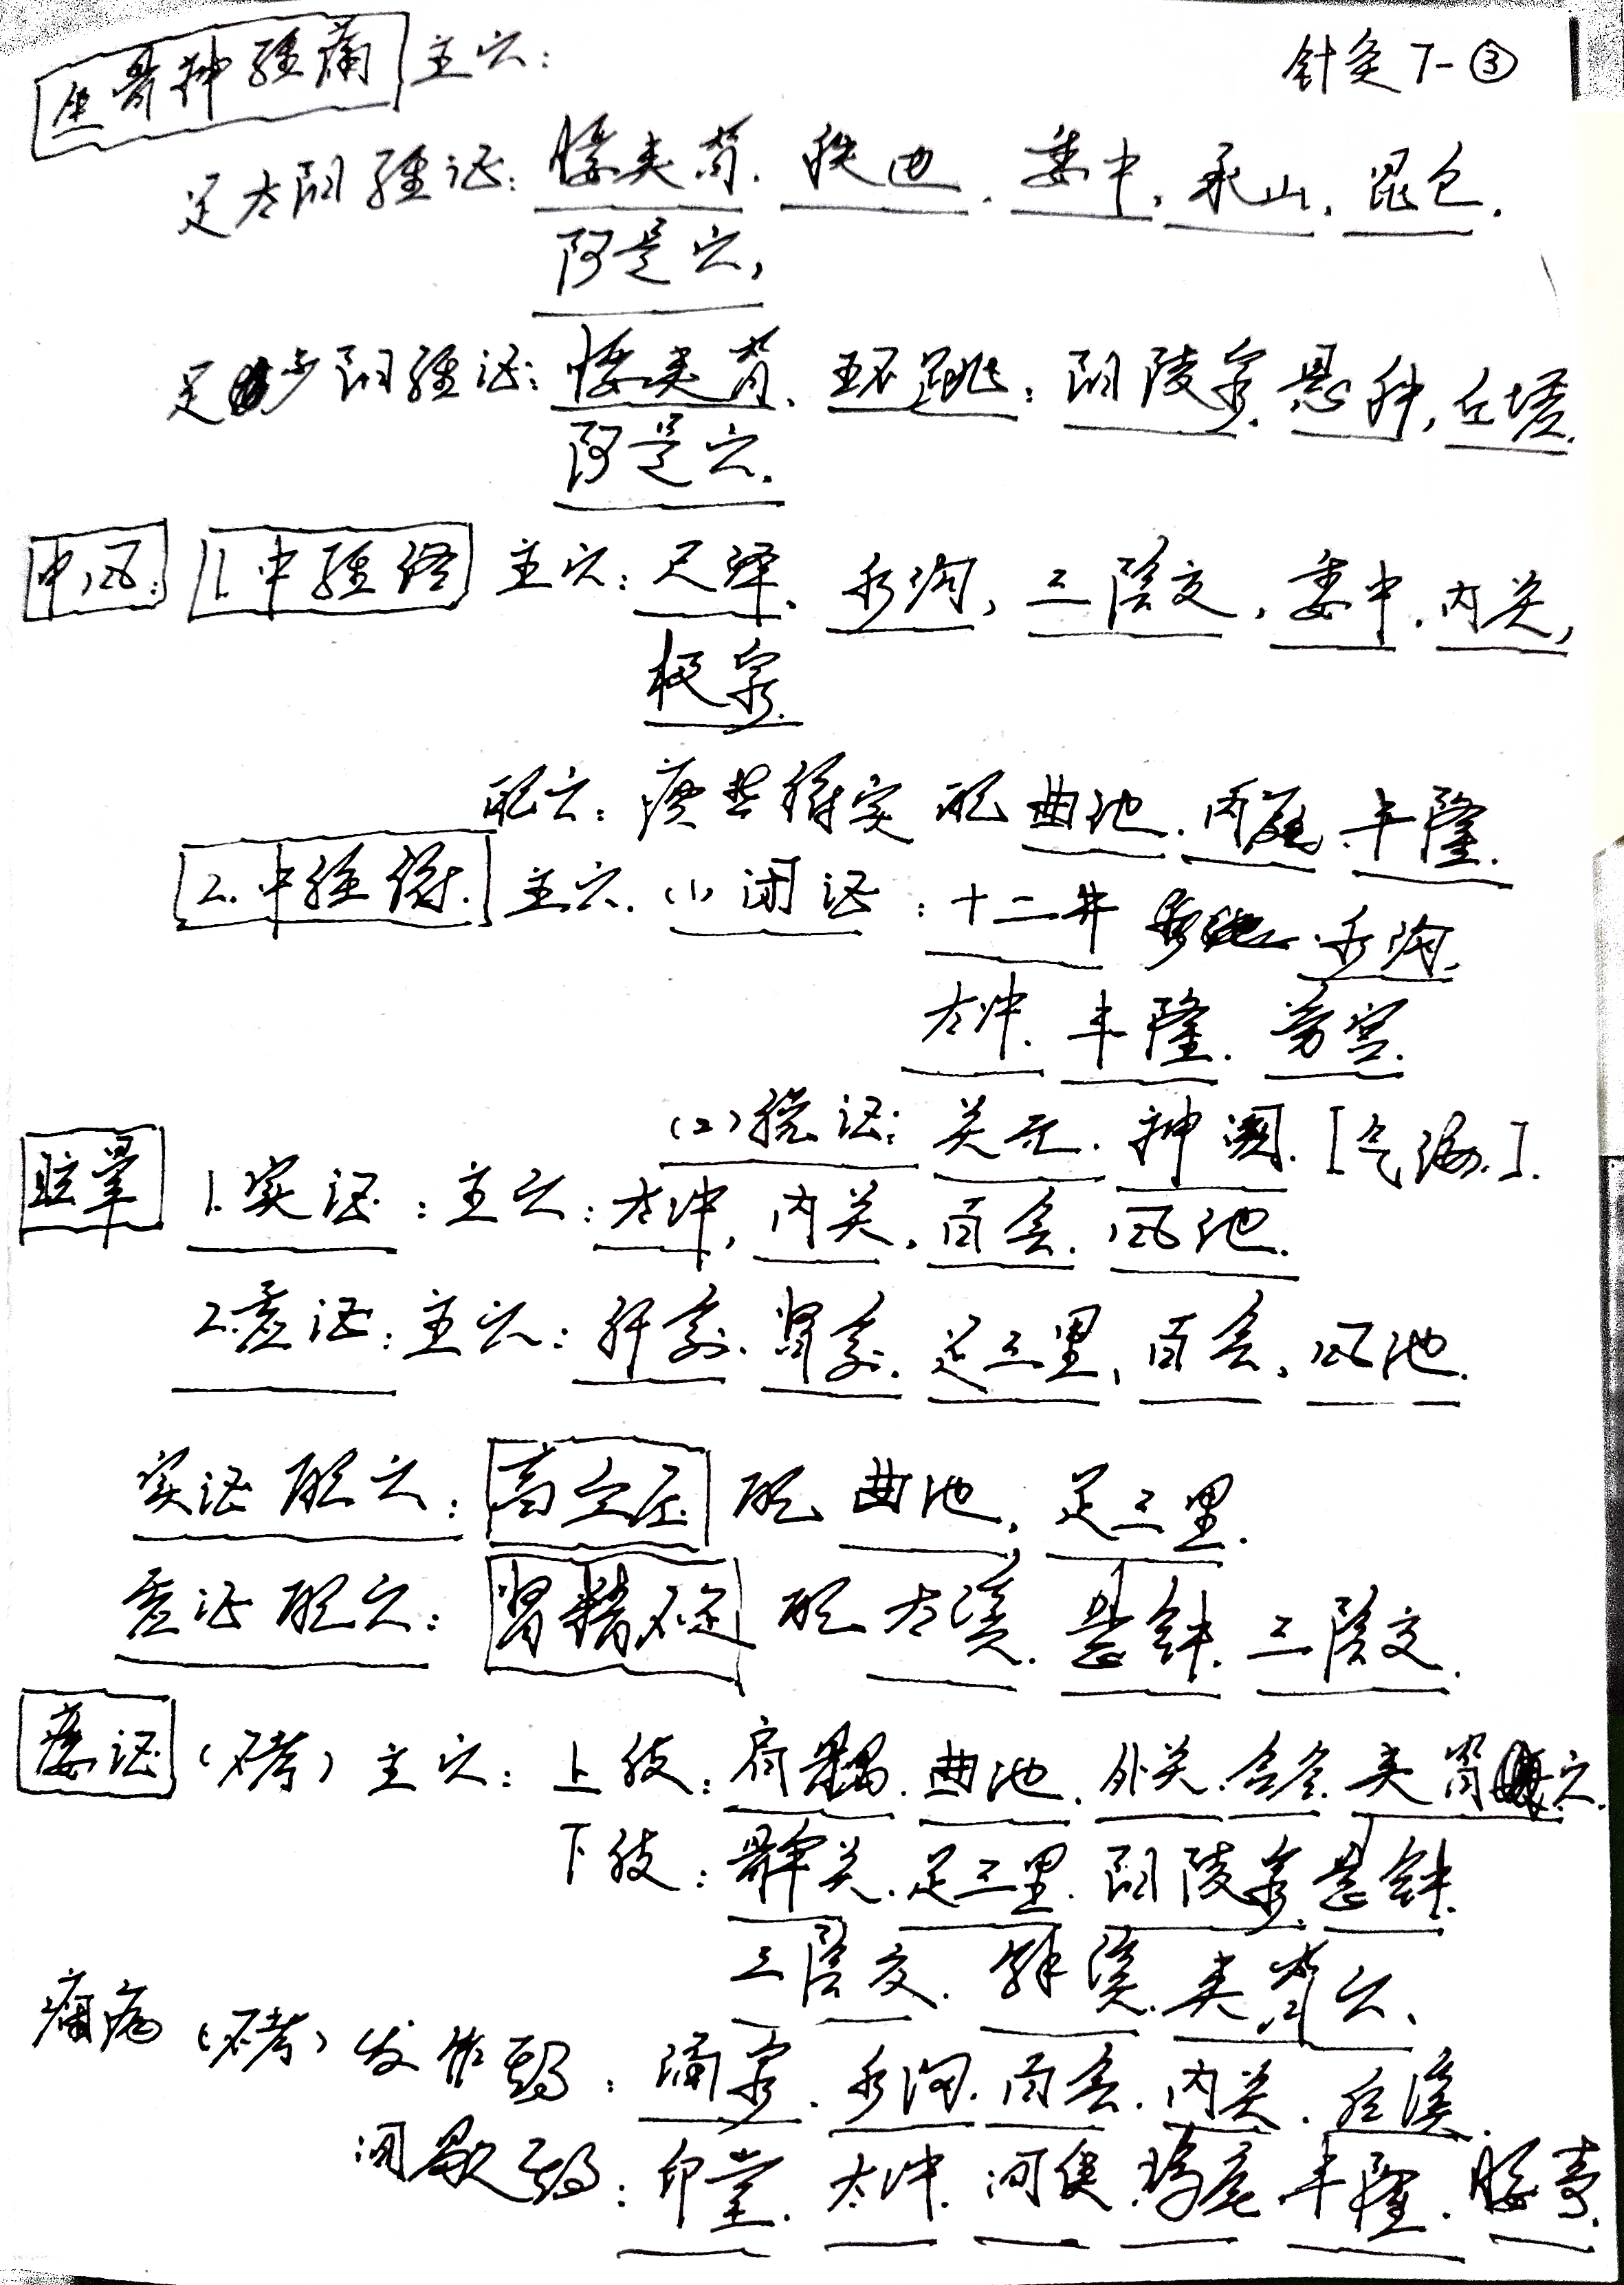 针灸 T-③
坐骨神经痛 主穴:
足太阳经证: 腰夹脊、秩边、委中、承山、昆仑.
阿是穴,
足少阳经证: 腰夹脊、环跳、阳陵泉、悬钟, 丘墟.
阿是穴.
中风: 1.中经络 主穴: 尺泽、水沟, 三阴交, 委中, 内关,
极泉.
配穴: 痰热腑实 配 曲池、内庭、丰隆.
2.中经脏. 主穴. (1)闭证: 十二井 水沟.
太冲. 丰隆. 劳宫.
(2)脱证: 关元. 神阙. [气海.].
眩晕 1.实证: 主穴: 太冲, 内关, 百会. 风池.
2.虚证: 主穴: 肝俞. 肾俞. 足三里, 百会, 风池.
实证配穴: 高血压 配 曲池, 足三里.
虚证配穴: 肾精不足 配 太溪. 悬钟. 三阴交.
痿证 (不考) 主穴: 上肢: 肩髃. 曲池. 外关. 合谷. 夹脊穴.
下肢: 髀关. 足三里. 阳陵泉. 悬钟.
三阴交. 解溪. 夹脊穴.
痫病 (不考) 发作期: 涌泉. 水沟. 百会. 内关. 后溪.
间歇期: 印堂. 太冲. 间使. 鸠尾 丰隆. 腰奇.